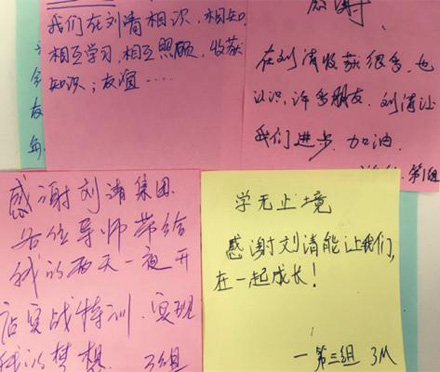 我们在刘清相识、相知、
相互学习、相互照顾、收获
知识；友谊……
感谢
在刘清收获很多，也
认识许多朋友.刘清让
我们进步.加油.
第1组
感谢刘清集团.
各位导师带给
我的两天一夜开
店实战特训.实现
我的梦想. 3组
学无止境
感谢刘清能让我们,
在一起成长!
—第三组 3M